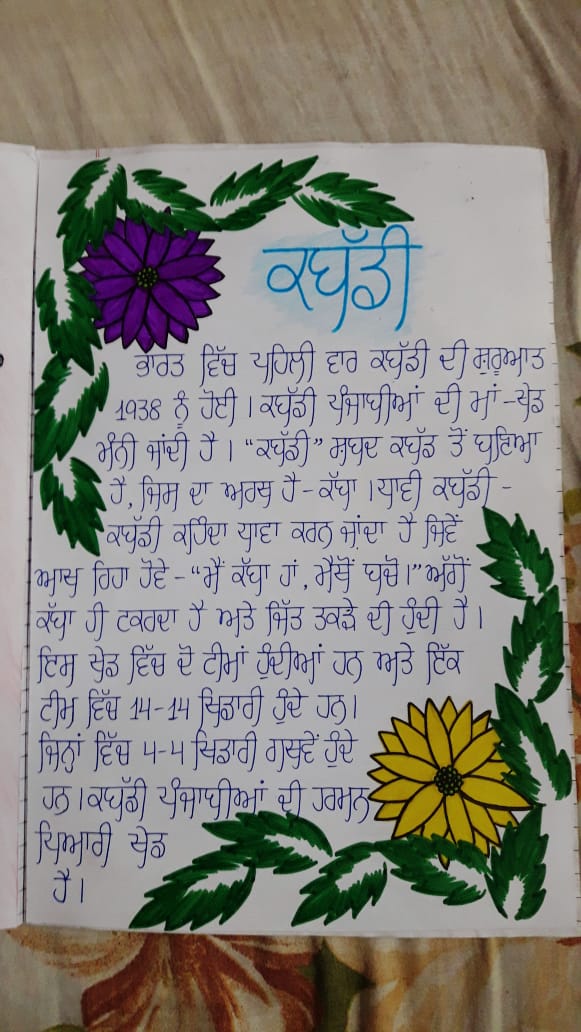 ਕਬੱਡੀ
ਭਾਰਤ ਵਿੱਚ ਪਹਿਲੀ ਵਾਰ ਕਬੱਡੀ ਦੀ ਸ਼ੁਰੂਆਤ
1938 ਨੂੰ ਹੋਈ । ਕਬੱਡੀ ਪੰਜਾਬੀਆਂ ਦੀ ਮਾਂ-ਖੇਡ
ਮੰਨੀ ਜਾਂਦੀ ਹੈ । “ਕਬੱਡੀ” ਸ਼ਬਦ ਕਬੱਡ ਤੋਂ ਬਣਿਆ
ਹੈ, ਜਿਸ ਦਾ ਅਰਥ ਹੈ - ਕੱਬਾ । ਧਾਵੀ ਕਬੱਡੀ -
ਕਬੱਡੀ ਕਹਿੰਦਾ ਧਾਵਾ ਕਰਨ ਜਾਂਦਾ ਹੈ ਜਿਵੇਂ
ਆਖ ਰਿਹਾ ਹੋਵੇ - “ਮੈਂ ਕੱਬਾ ਹਾਂ, ਮੈਥੋਂ ਬਚੋ ।” ਅੱਗੋਂ
ਕੱਬਾ ਹੀ ਟਕਰਦਾ ਹੈ ਅਤੇ ਜਿੱਤ ਤਕੜੇ ਦੀ ਹੁੰਦੀ ਹੈ ।
ਇਸ ਖੇਡ ਵਿੱਚ ਦੋ ਟੀਮਾਂ ਹੁੰਦੀਆਂ ਹਨ ਅਤੇ ਇੱਕ
ਟੀਮ ਵਿੱਚ 14-14 ਖਿਡਾਰੀ ਹੁੰਦੇ ਹਨ।
ਜਿਨ੍ਹਾਂ ਵਿੱਚ 4-4 ਖਿਡਾਰੀ ਰਾਖਵੇਂ ਹੁੰਦੇ
ਹਨ । ਕਬੱਡੀ ਪੰਜਾਬੀਆਂ ਦੀ ਹਰਮਨ
ਪਿਆਰੀ ਖੇਡ
ਹੈ ।